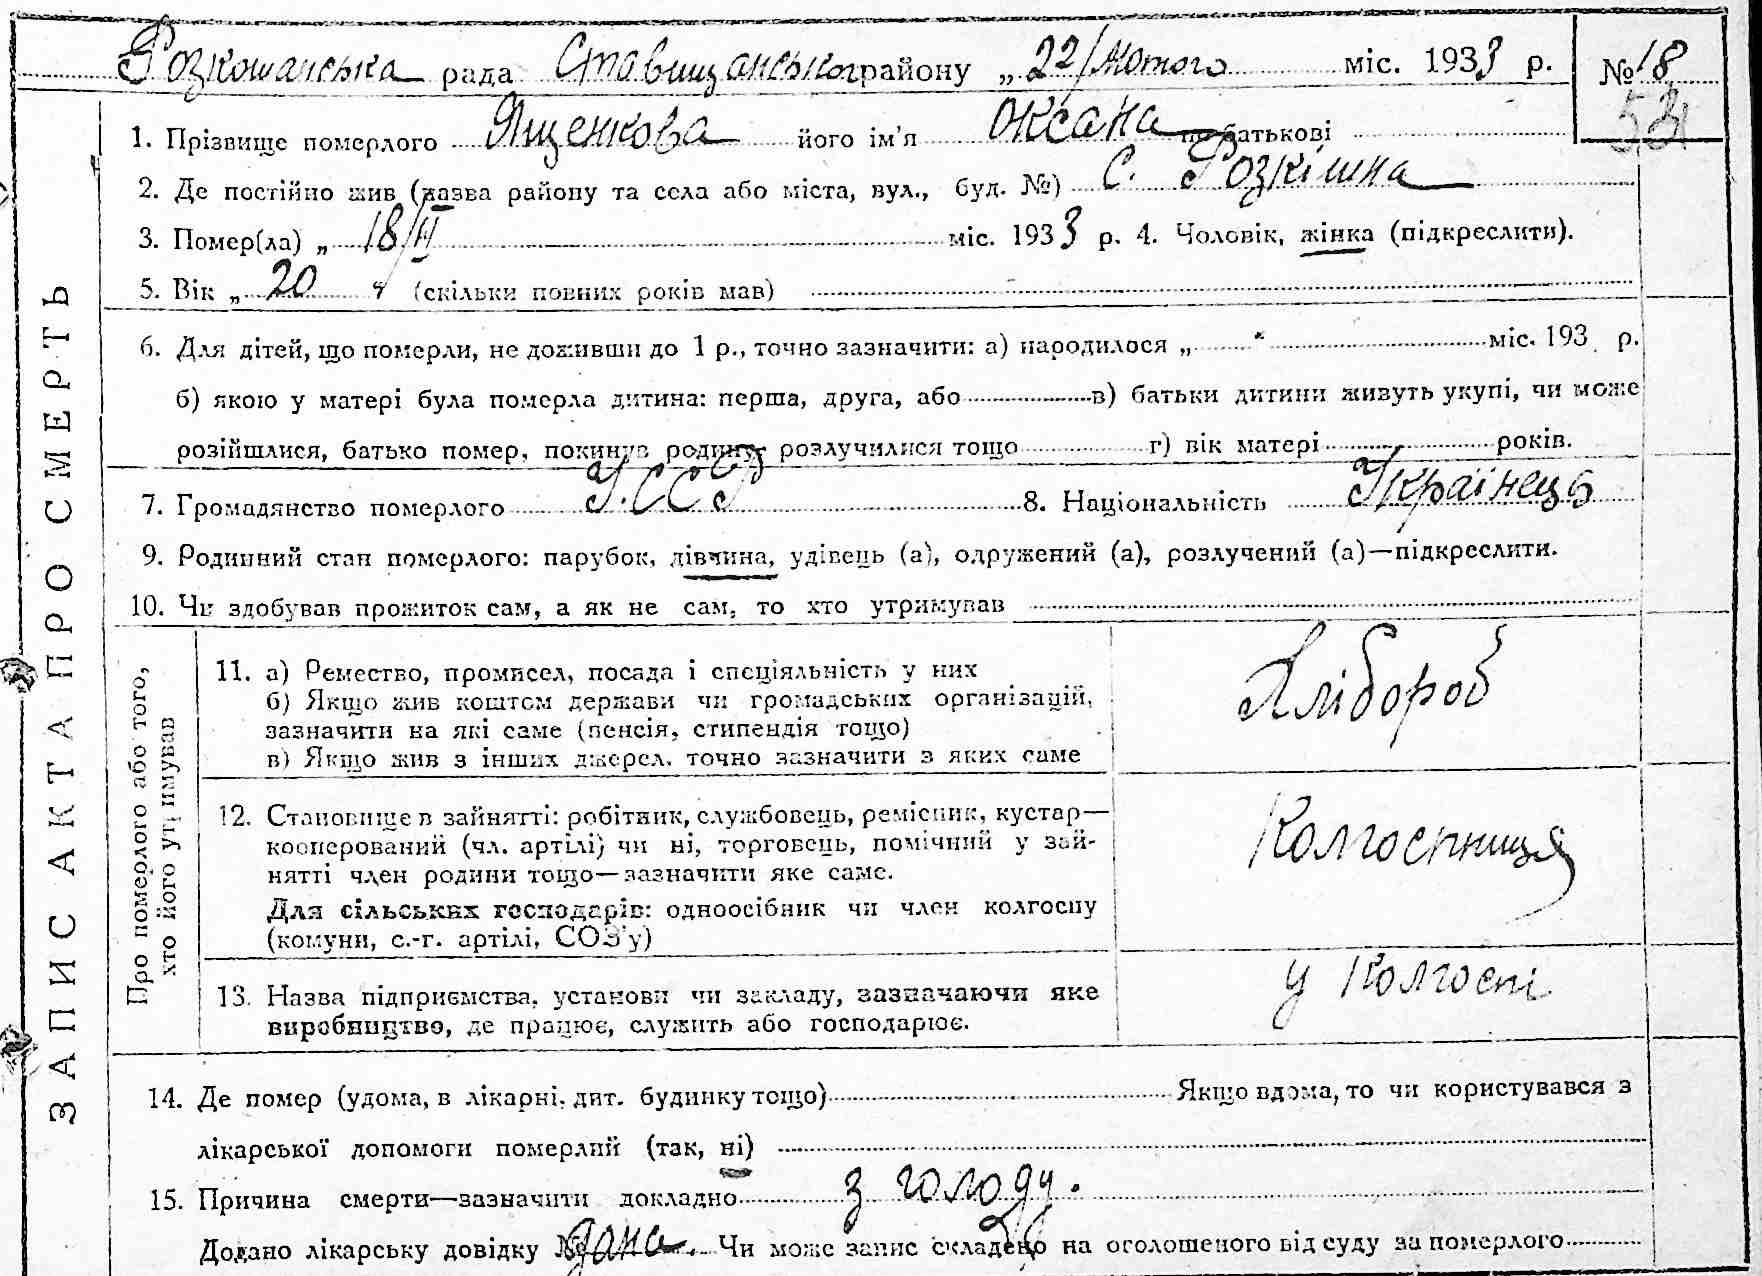 Розкошанська рада Ставищанського району „22/Лютого міс. 1933 р. № 18
53
1. Прізвище померлого Ященкова його ім'я Оксана по батькові
2. Де постійно жив (назва району та села або міста, вул., буд. №) С. Розкішна
3. Помер(ла) „ 18/II міс. 1933 р. 4. Чоловік, жінка (підкреслити).
5. Вік „ 20 (скільки повних років мав)
6. Для дітей, що померли, не доживши до 1 р., точно зазначити: а) народилося „ міс. 193 р.
б) якою у матері була померла дитина: перша, друга, або в) батьки дитини живуть укупі, чи може
розійшлися, батько помер, покинув родину, розлучилися тощо г) вік матері років.
7. Громадянство померлого У.ССР 8. Національність Українець
9. Родинний стан померлого: парубок, дівчина, удівець (а), одружений (а), розлучений (а)—підкреслити.
10. Чи здобував прожиток сам, а як не сам, то хто утримував
ЗАПИС АКТА ПРО СМЕРТЬ
Про померлого або того,
хто його утримував
11. а) Ремество, промисел, посада і спеціяльність у них
б) Якщо жив коштом держави чи громадських організацій,
зазначити на які саме (пенсія, стипендія тощо)
в) Якщо жив з інших джерел, точно зазначити з яких саме
Хлібороб
12. Становище в зайнятті: робітник, службовець, ремісник, кустар—
кооперований (чл. артілі) чи ні, торговець, помічний у зай-
нятті член родини тощо—зазначити яке саме.
Для сільських господарів: одноосібник чи член колгоспу
(комуни, с.-г. артілі, СОЗ'у)
Колгоспниця
13. Назва підприємства, установи чи закладу, зазначаючи яке
виробництво, де працює, служить або господарює.
у Колгоспі
14. Де помер (удома, в лікарні, дит. будинку тощо) Якщо вдома, то чи користувався з
лікарської допомоги померлий (так, ні)
15. Причина смерти—зазначити докладно з голоду.
Додано лікарську довідку № Чи може запис складено на оголошеного від суду за померлого